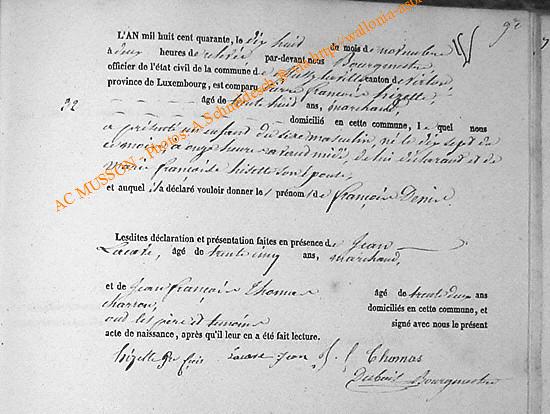 L'AN mil huit cent quarante, le dix huit du mois de novembre
à deux heures de relevée par-devant nous Bourgmestre
officier de l'état civil de la commune de Mussy la ville canton de Virton
province de Luxembourg, est comparu Pierre françois hizette,
32 âgé de trente huit ans, marchand,
domicilié en cette commune, lequel nous
a présenté un enfant du sexe masculin, né le dix sept de
ce mois, à onze heures avant midi, de lui déclarant et de
Marie françoise son épouse,
et auquel il a déclaré vouloir donner le prénom de françois Denis.
Lesdites déclaration et présentation faites en présence de Jean
Lavare, âgé de trente cinq ans, marchand,
et de Jean françois Thomas âgé de trente deux ans
charron, domiciliés en cette commune, et
ont les père et témoins signé avec nous le présent
acte de naissance, après qu'il leur en a été fait lecture.
hizette Pre fcois Jean J. f Thomas
Bourgmestre
AC MUSSON - Photos: A.Schneidesch @ http://wallonia-asbl